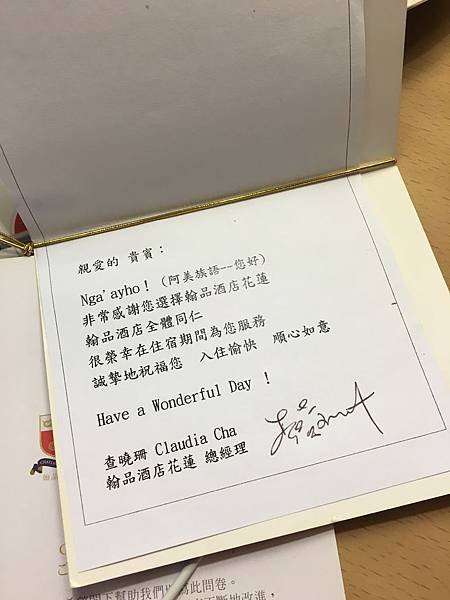 親愛的 貴賓：
Nga'ayho！（阿美族語--您好）
非常感謝您選擇翰品酒店花蓮
翰品酒店全體同仁
很榮幸在住宿期間為您服務
誠摯地祝福您 入住愉快 順心如意
Have a Wonderful Day ！
查曉珊 Claudia Cha
翰品酒店花蓮 總經理
下幫助我們
此問卷。
不斷地改進，